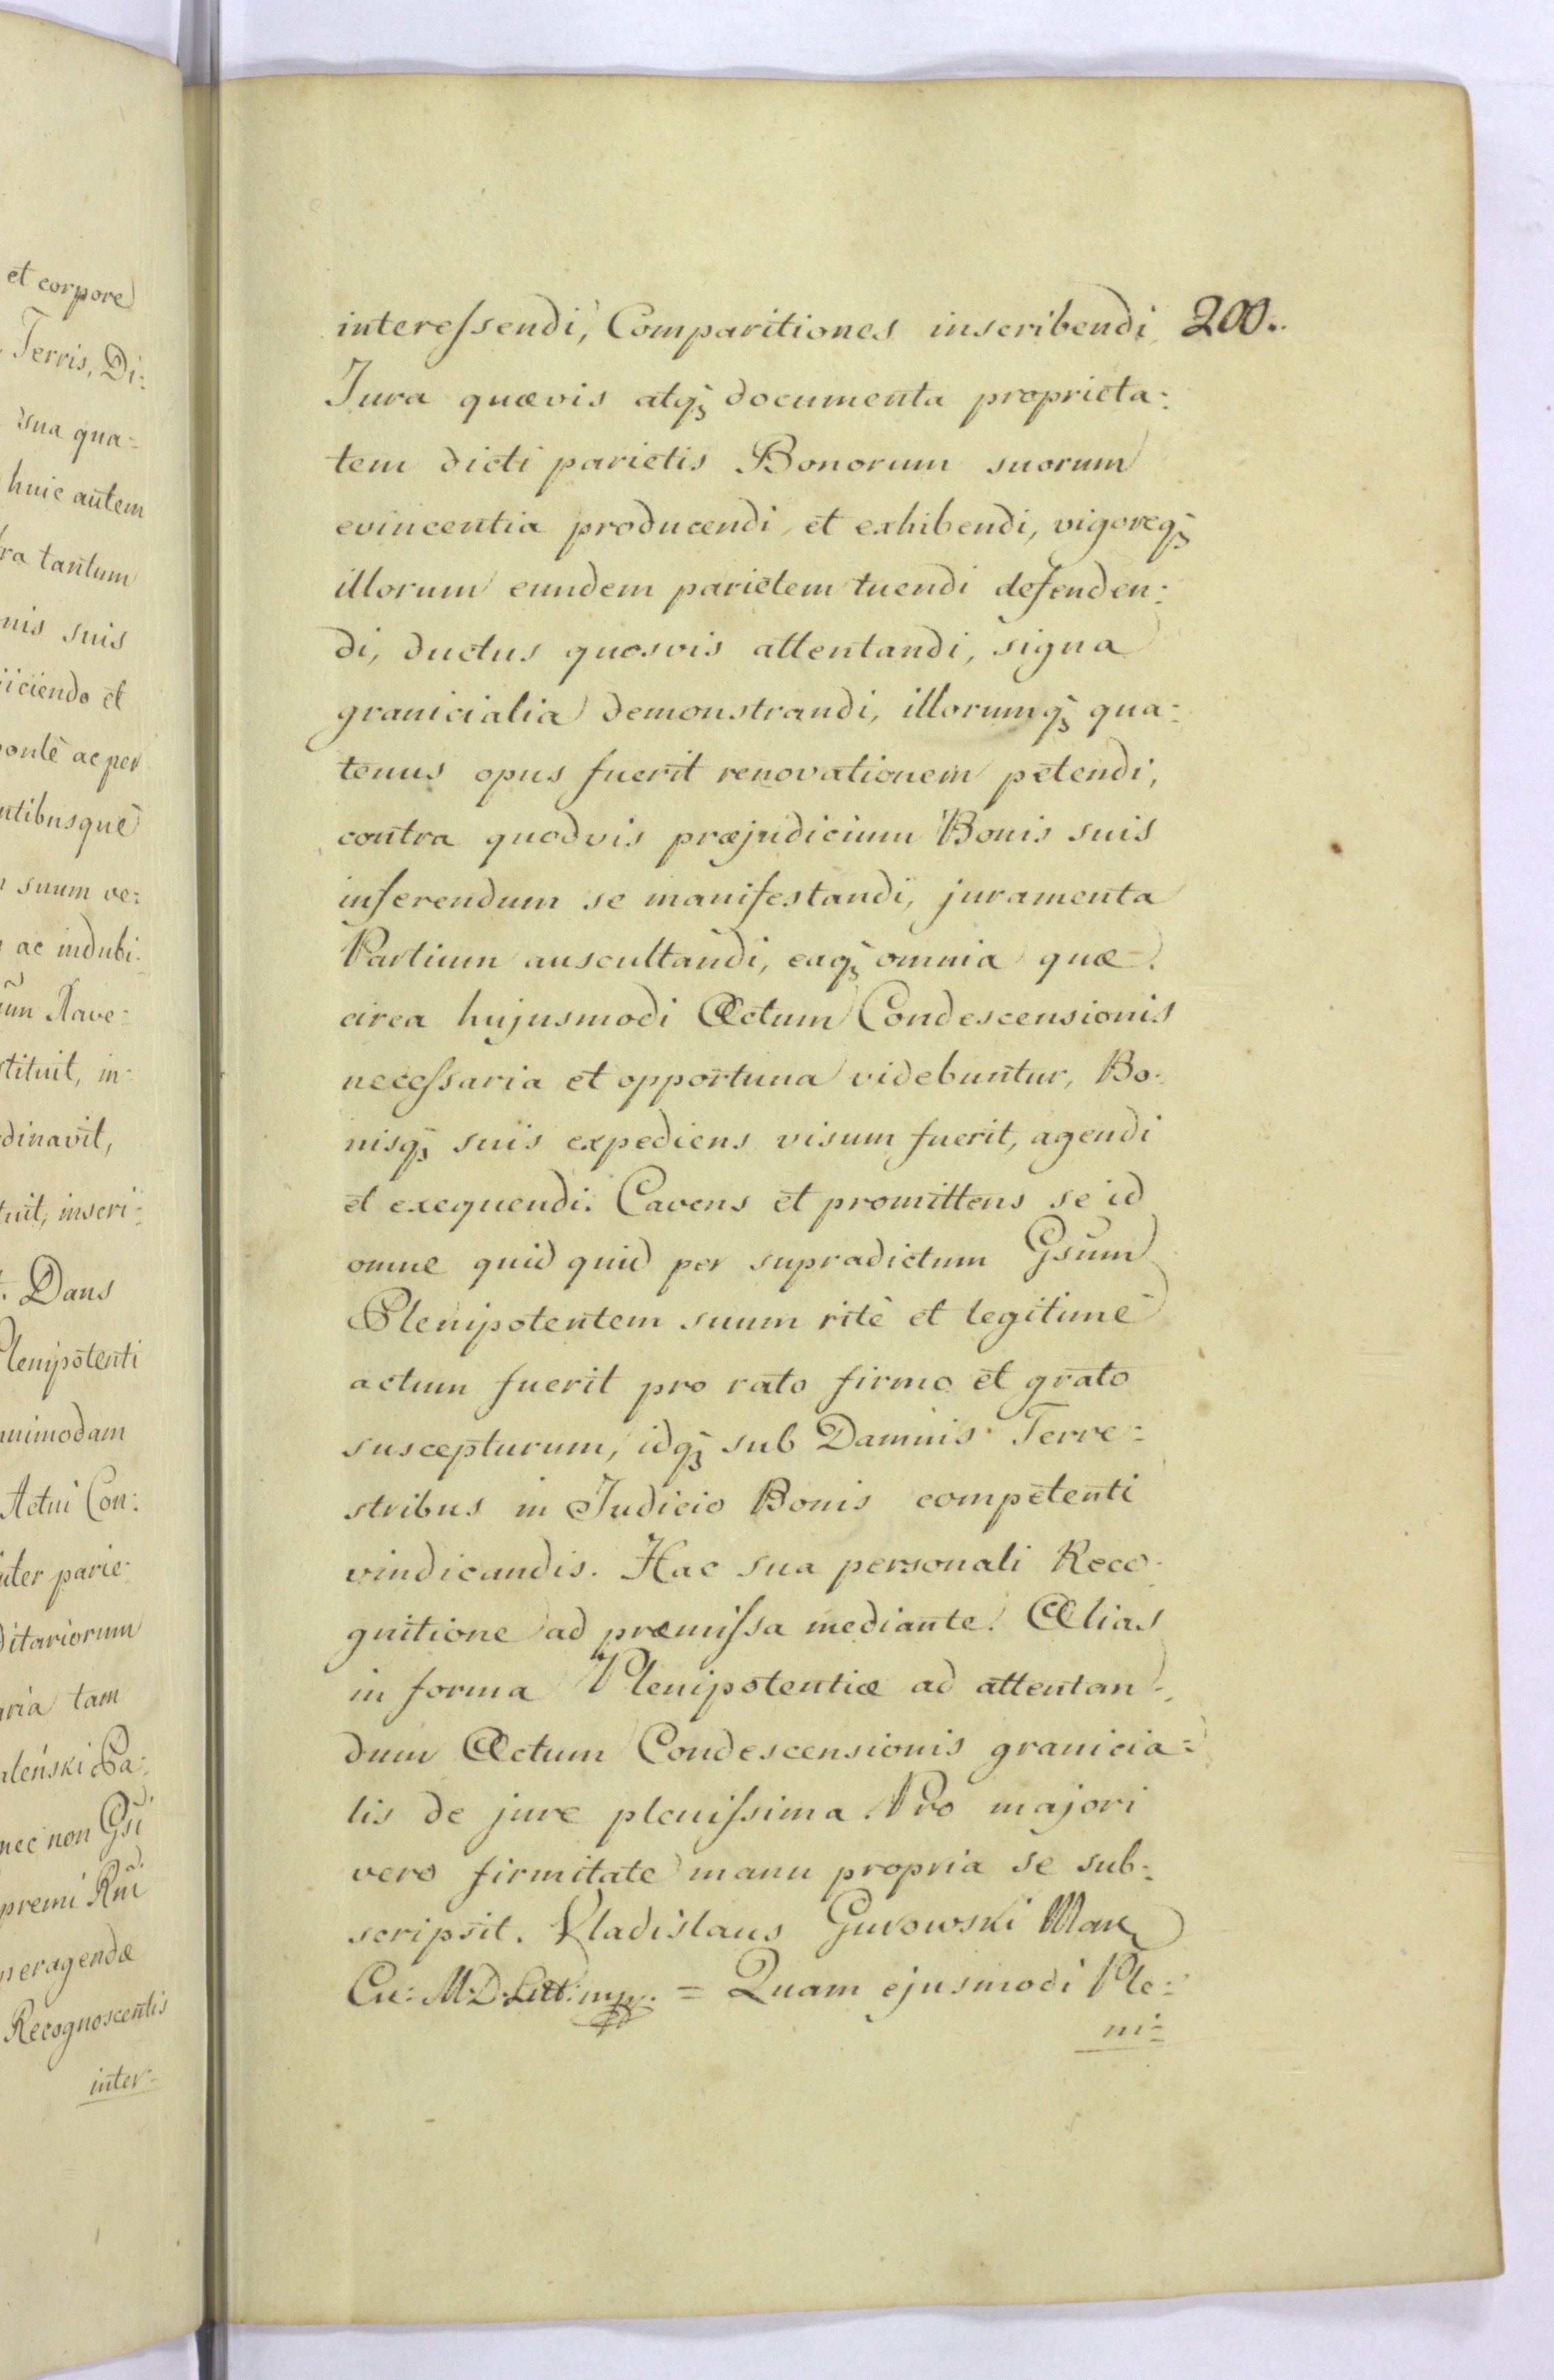 et corpore
Terris, Di:
sua qua=
huic autem
ra tantum
nis suis
iiciendo et
ponte ac per
ntibusque
suum ve:
ac indubi:
Nave:
stituit, in:
dinavit,
tuit, inseri:
Dans
Plenipotenti
nimodam
Actui Con:
inter parie:
ditariorum
aria tam
alenski Pa:
nec non Gsi
premi Rni
peragendæ
Recognoscentis
inter=
interessendi, Comparitiones inscribendi 200.
Jura quævis atq; documenta proprieta:
tem dicti parietis Bonorum suorum
evincentia producendi et exhibendi, vigoreq;
illorum eundem parietem tuendi defenden:
di, ductus quosvis attentandi, signa
granicialia demonstrandi, illorumq; qua:
tenus opus fuerit renovationem petendi,
contra quodvis præjudicium Bonis suis
inferendum se manifestandi, juramenta
Partium auscultandi, eaq; omnia quæ
circa hujusmodi Actum Condescensionis
necessaria et opportuna videbuntur, Bo:
nisq; suis expediens visum fuerit, agendi
et exequendi. Cavens et promittens se id
omne quid quid per supradictum Gsum
Plenipotentem suum ritè et legitimè
actum fuerit pro rato firmo et grato
suscepturum, idq; sub Damnis Terre:
stribus in Judicio Bonis competenti
vindicandis. Hac sua personali Reco:
gnitione ad præmissa mediante. Alias
in forma Plenipotentiæ ad attentan:
dum Actum Condescensionis granicia:
lis de jure plenissima. Pro majori
vero firmitate manu propria se sub:
scripsit. Vladislaus Gurowski Mar
Cu: M: D: Litt: mpp. = Quam ejusmodi Ple:
ni=